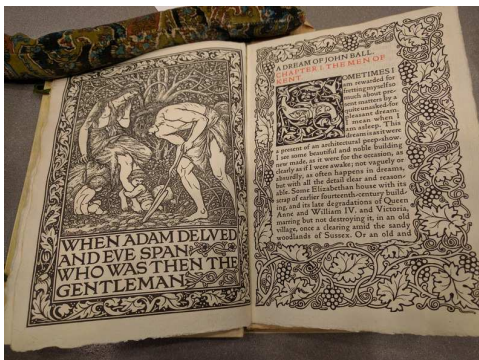 WHEN ADAM DELVED
AND EVE SPAN
WHO WAS THEN THE
GENTLEMAN
A DREAM OF JOHN BALL.
CHAPTER I. THE MEN OF
KENT.
SOMETIMES I
am rewarded for
fretting myself so
much about pre-
sent matters by a
quite unasked-for
pleasant dream.
I mean when I
am asleep. This
dream is as it were
a present of an architectural peep-show.
I see some beautiful and noble building
new made, as it were for the occasion, as
clearly as if I were awake; not vaguely or
absurdly, as often happens in dreams,
but with all the detail clear and reason-
able. Some Elizabethan house with its
scrap of earlier fourteenth-century build-
ing, and its later degradations of Queen
Anne and William IV. and Victoria,
marring but not destroying it, in an old
village, once a clearing amid the sandy
woodlands of Sussex. Or an old and